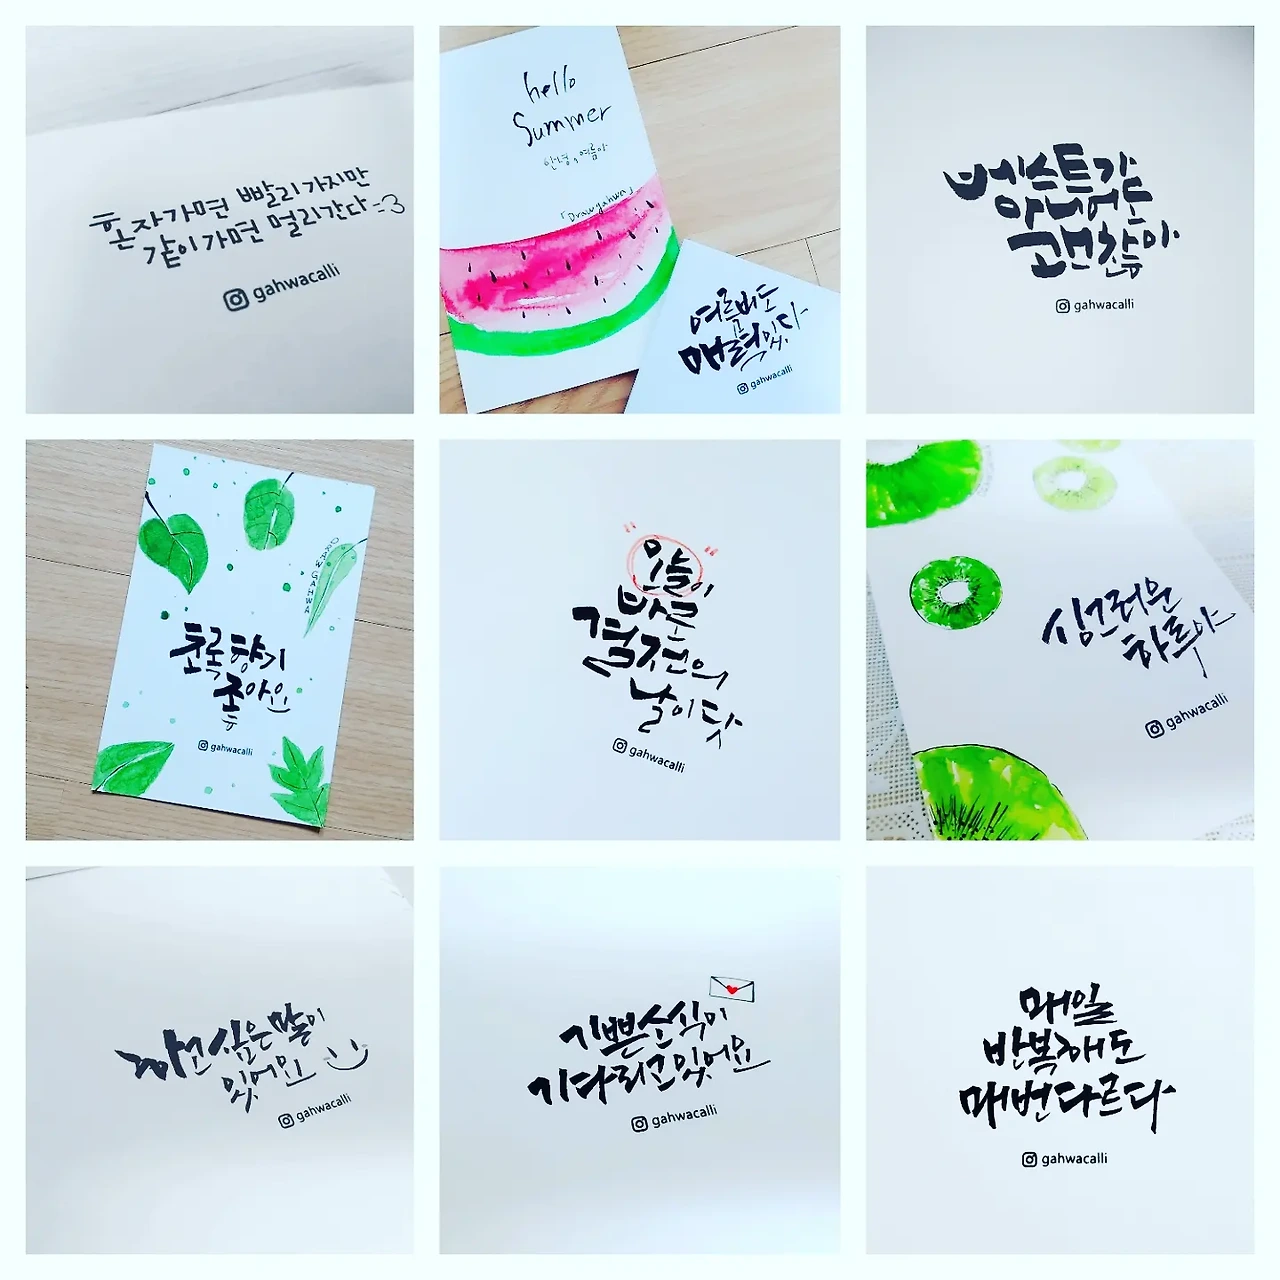 혼자가면 빨리가지만
같이가면 멀리간다=3
gahwacalli
hello
Summer
안녕, 여름아
「Drawgahwa」
여름밤도
매력있다
gahwacalli
베스트가
아니어도
괜찮아
gahwacalli
DRAW GAHWA
초록향기
좋아요
gahwacalli
"오늘"이
바로
결전의
날이닷
gahwacalli
싱그러운
하루야
gahwacalli
하고싶은말이
있어요
gahwacalli
기쁜소식이
기다리고있어요
gahwacalli
매일
반복해도
매번다르다
gahwacalli